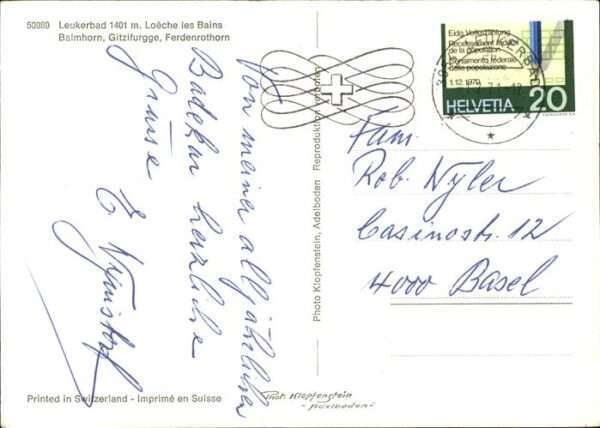 50080 Leukerbad 1401 m. Loèche les Bains
Balmhorn, Gitzifurgge, Ferdenrothorn
Von meiner alljährlichen
Badekur herzliche
Grüsse
E.
Photo Klopfenstein, Adelboden Reproduktion verboten
Eidg. Volkszählung
Recensement fédéral
de la population
Censimento federale
della popolazione
1.12.1970
HELVETIA 20
LEUKERBAD
Fam.
Rob. Wyler
Casinostr. 12
4000 Basel
Printed in Switzerland - Imprimé en Suisse
Phot. Klopfenstein
- Adelboden -